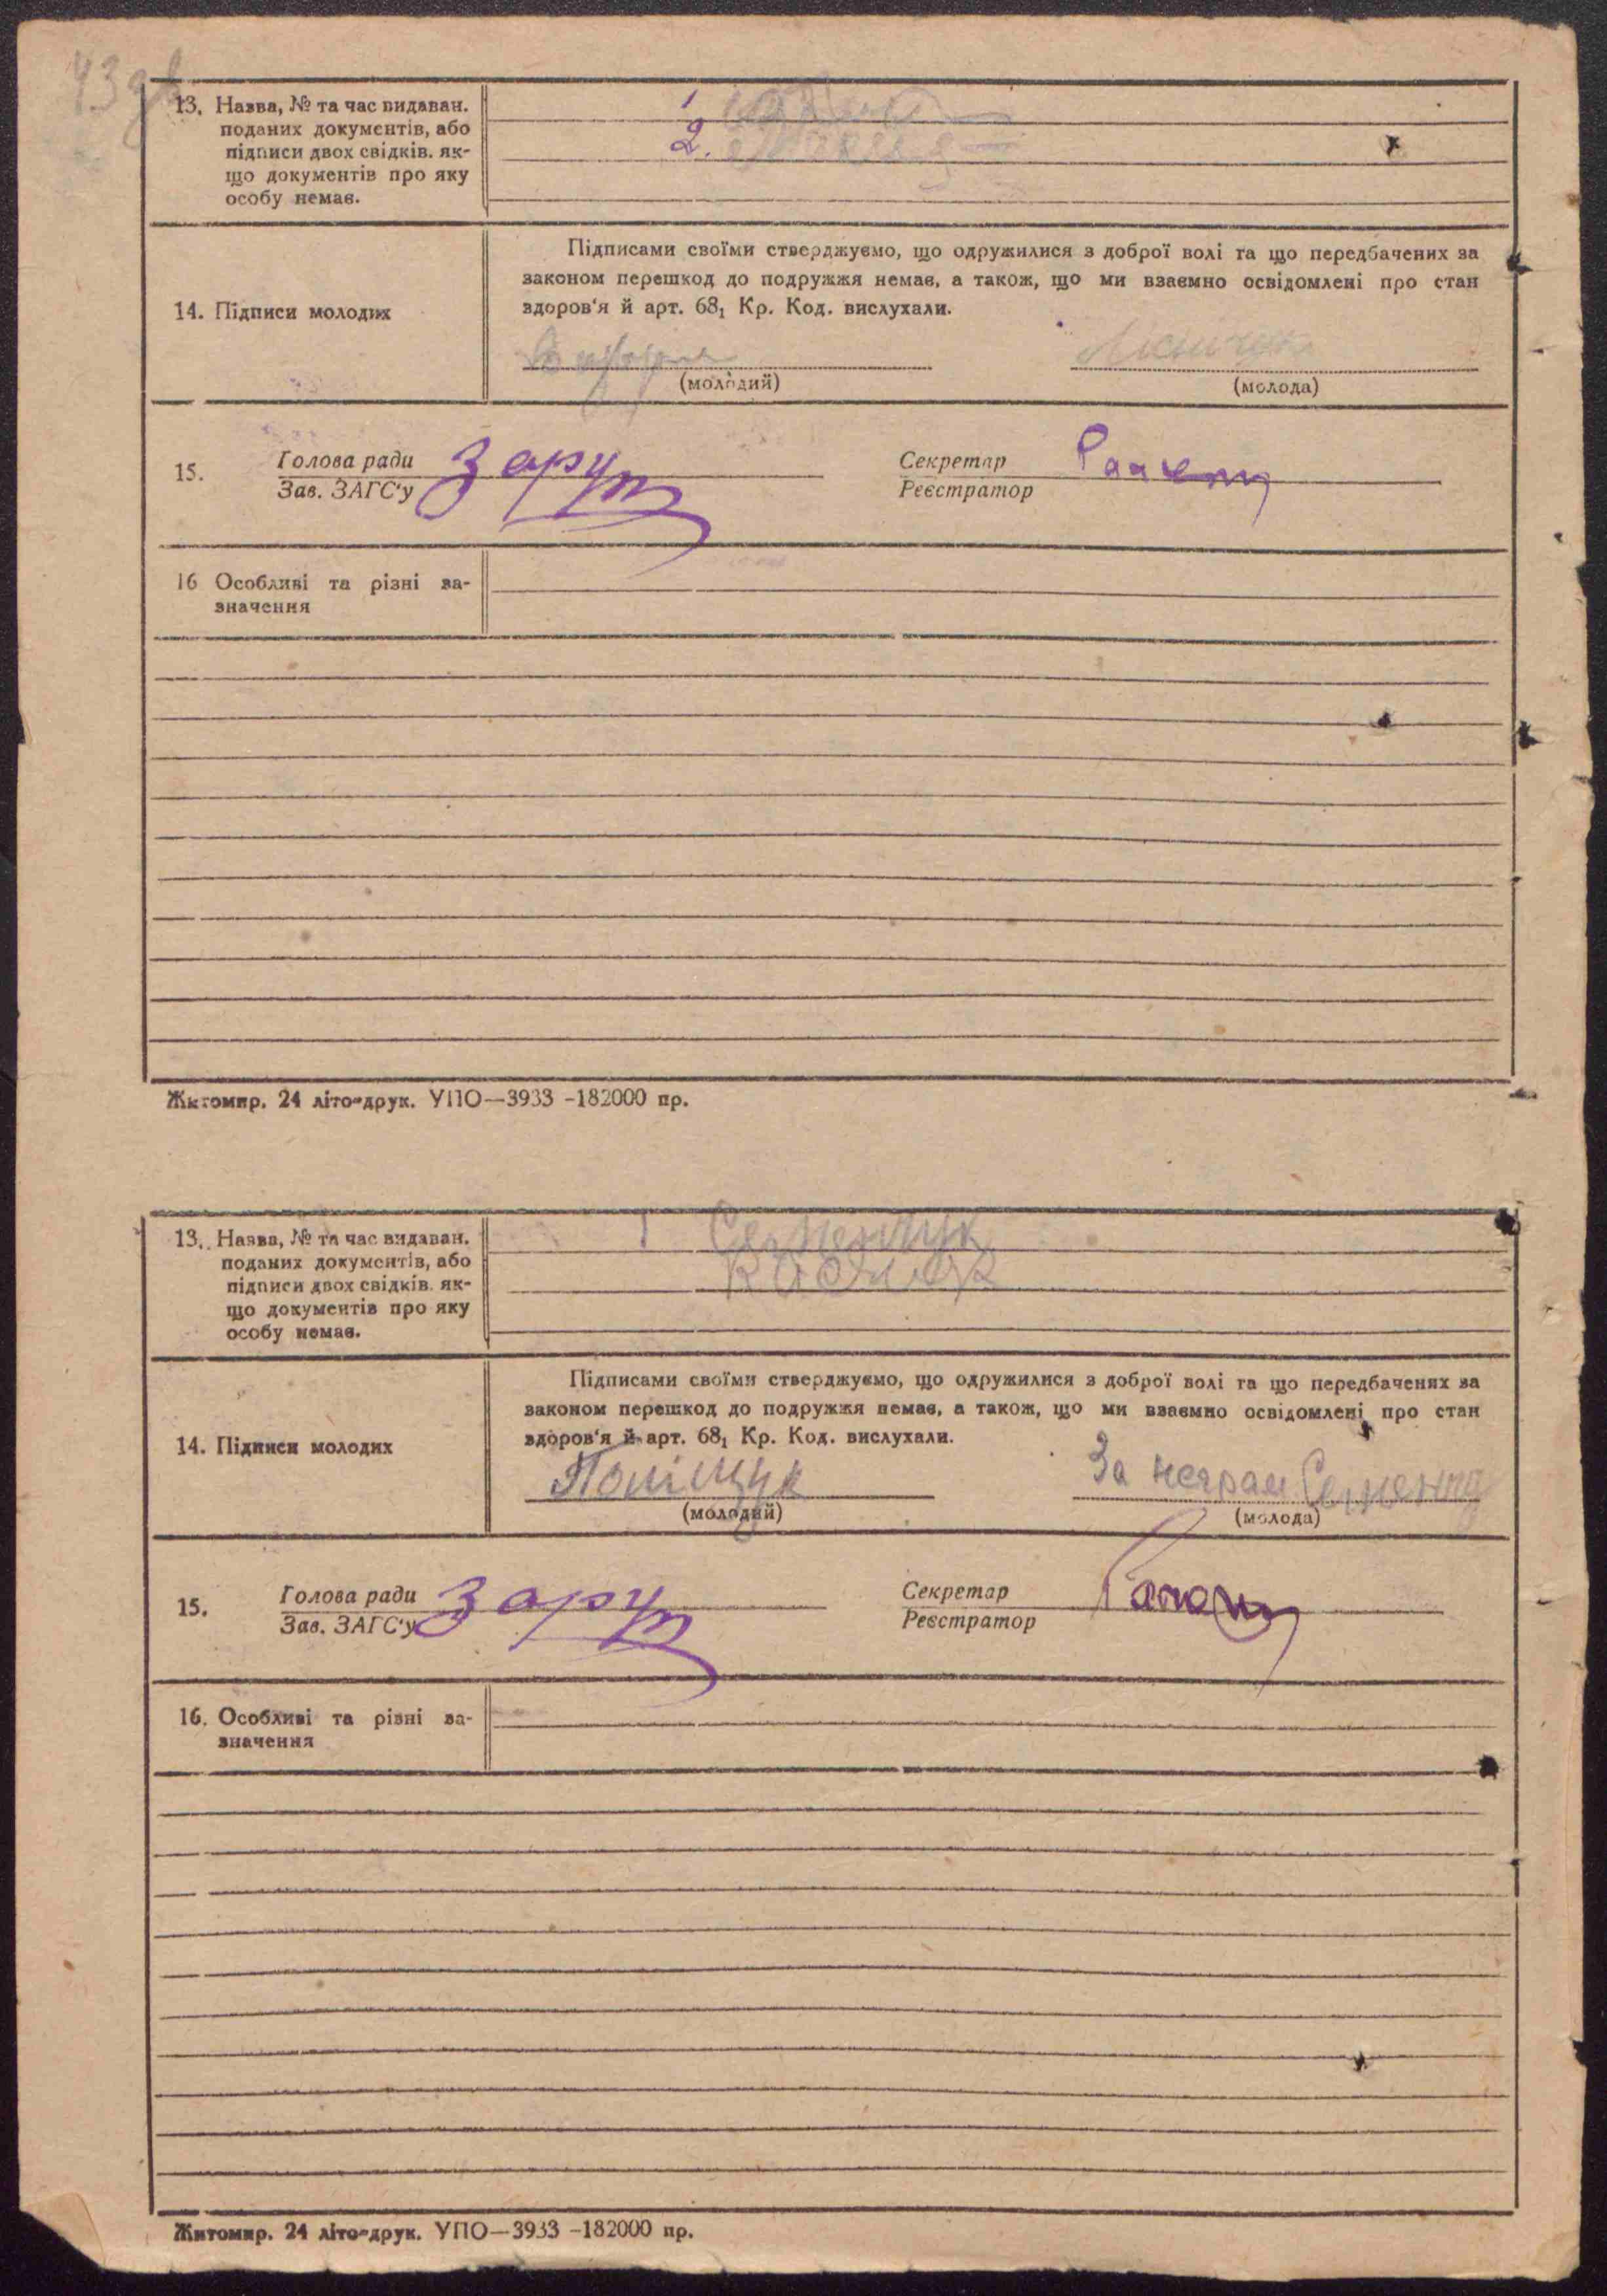 43
13. Назва, № та час видаван.
поданих документів, або
підписи двох свідків. як-
що документів про яку
особу немає.
1
2.
14. Підписи молодих
Підписами своїми стверджуємо, що одружилися з доброї волі та що передбачених за
законом перешкод до подружжя немає, а також, що ми взаємно освідомлені про стан
здоров'я й арт. 68₁ Кр. Код. вислухали.
(молодий)
(молода)
15.
Голова ради
Зав. ЗАГС'у
Зарут
Секретар
Реєстратор
16 Особливі та різні за-
значення
Житомир. 24 літо-друк. УПО—3933 -182000 пр.
13. Назва, № та час видаван.
поданих документів, або
підписи двох свідків. як-
що документів про яку
особу немає.
1 Семенчук
14. Підписи молодих
Підписами своїми стверджуємо, що одружилися з доброї волі та що передбачених за
законом перешкод до подружжя немає, а також, що ми взаємно освідомлені про стан
здоров'я й арт. 68₁ Кр. Код. вислухали.
Поліщук
(молодий)
За неграм Семенчу
(молода)
15.
Голова ради
Зав. ЗАГС'у
Зарут
Секретар
Реєстратор
16. Особливі та різні за-
значення
Житомир. 24 літо-друк. УПО—3933 -182000 пр.